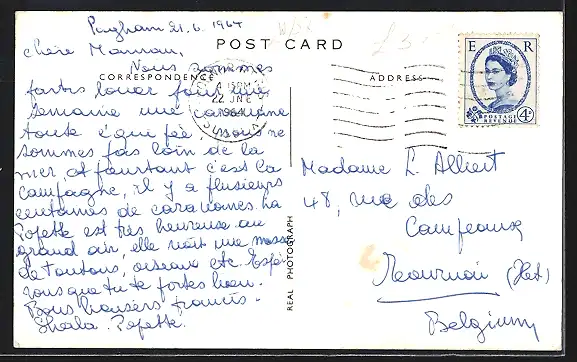 Pagham 21.6.1964
POST CARD
CORRESPONDENCE
ADDRESS
Chère Maman,
Nous sommes
partis louer pour une
semaine une caravane
toute équipée, nous ne
sommes pas loin de la
mer, et pourtant c'est la
campagne, il y a plusieurs
centaines de caravanes. La
Popette est très heureuse au
grand air, elle voit une masse
de toutous, oiseaux etc. Espé-
rons que tu te portes bien.
Bons baisers Francis.
Sheila. Popette.
22 JNE
1964
E R
POSTAGE
REVENUE
4D
REAL PHOTOGRAPH
Madame L. Allient
48, rue des
Campeaux
Tournai (Ht)
Belgium
£3